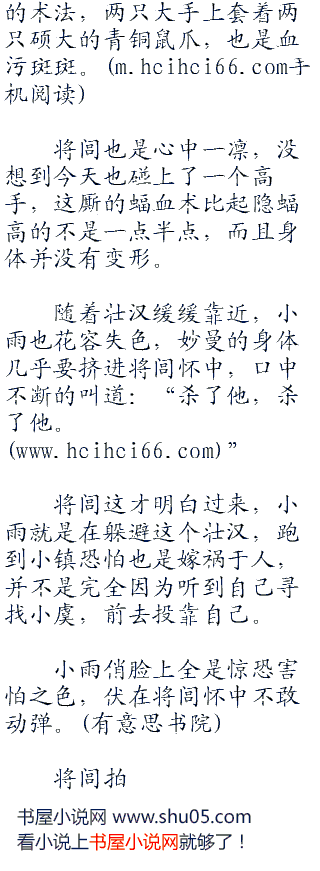 的术法，两只大手上套着两
只硕大的青铜鼠爪，也是血
污斑斑。(m.hcihci66.com手
机阅读)
将闾也是心中一凛，没
想到今天也碰上了一个高
手，这厮的蝠血术比起隐蝠
高的不是一点半点，而且身
体并没有变形。
随着壮汉缓缓靠近，小
雨也花容失色，妙曼的身体
几乎要挤进将闾怀中，口中
不断的叫道：“杀了他，杀
了他。
(www.hcihci66.com)”
将闾这才明白过来，小
雨就是在躲避这个壮汉，跑
到小镇恐怕也是嫁祸于人，
并不是完全因为听到自己寻
找小虞，前去投靠自己。
小雨俏脸上全是惊恐害
怕之色，伏在将闾怀中不敢
动弹。(有意思书院)
将闾拍
书屋小说网 www.shu05.com
看小说上书屋小说网就够了！